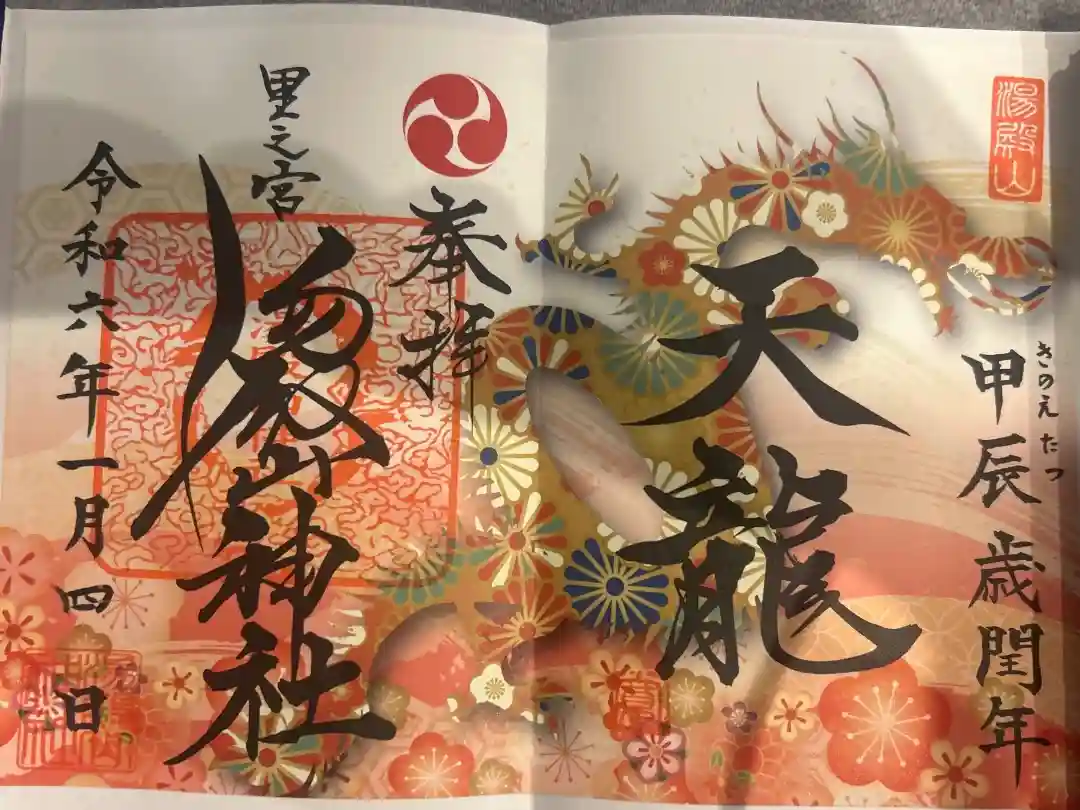 湯殿山
甲辰歳閏年
きのえ たつ
天龍
奉拝
里之宮
湯殿山神社
令和六年一月四日